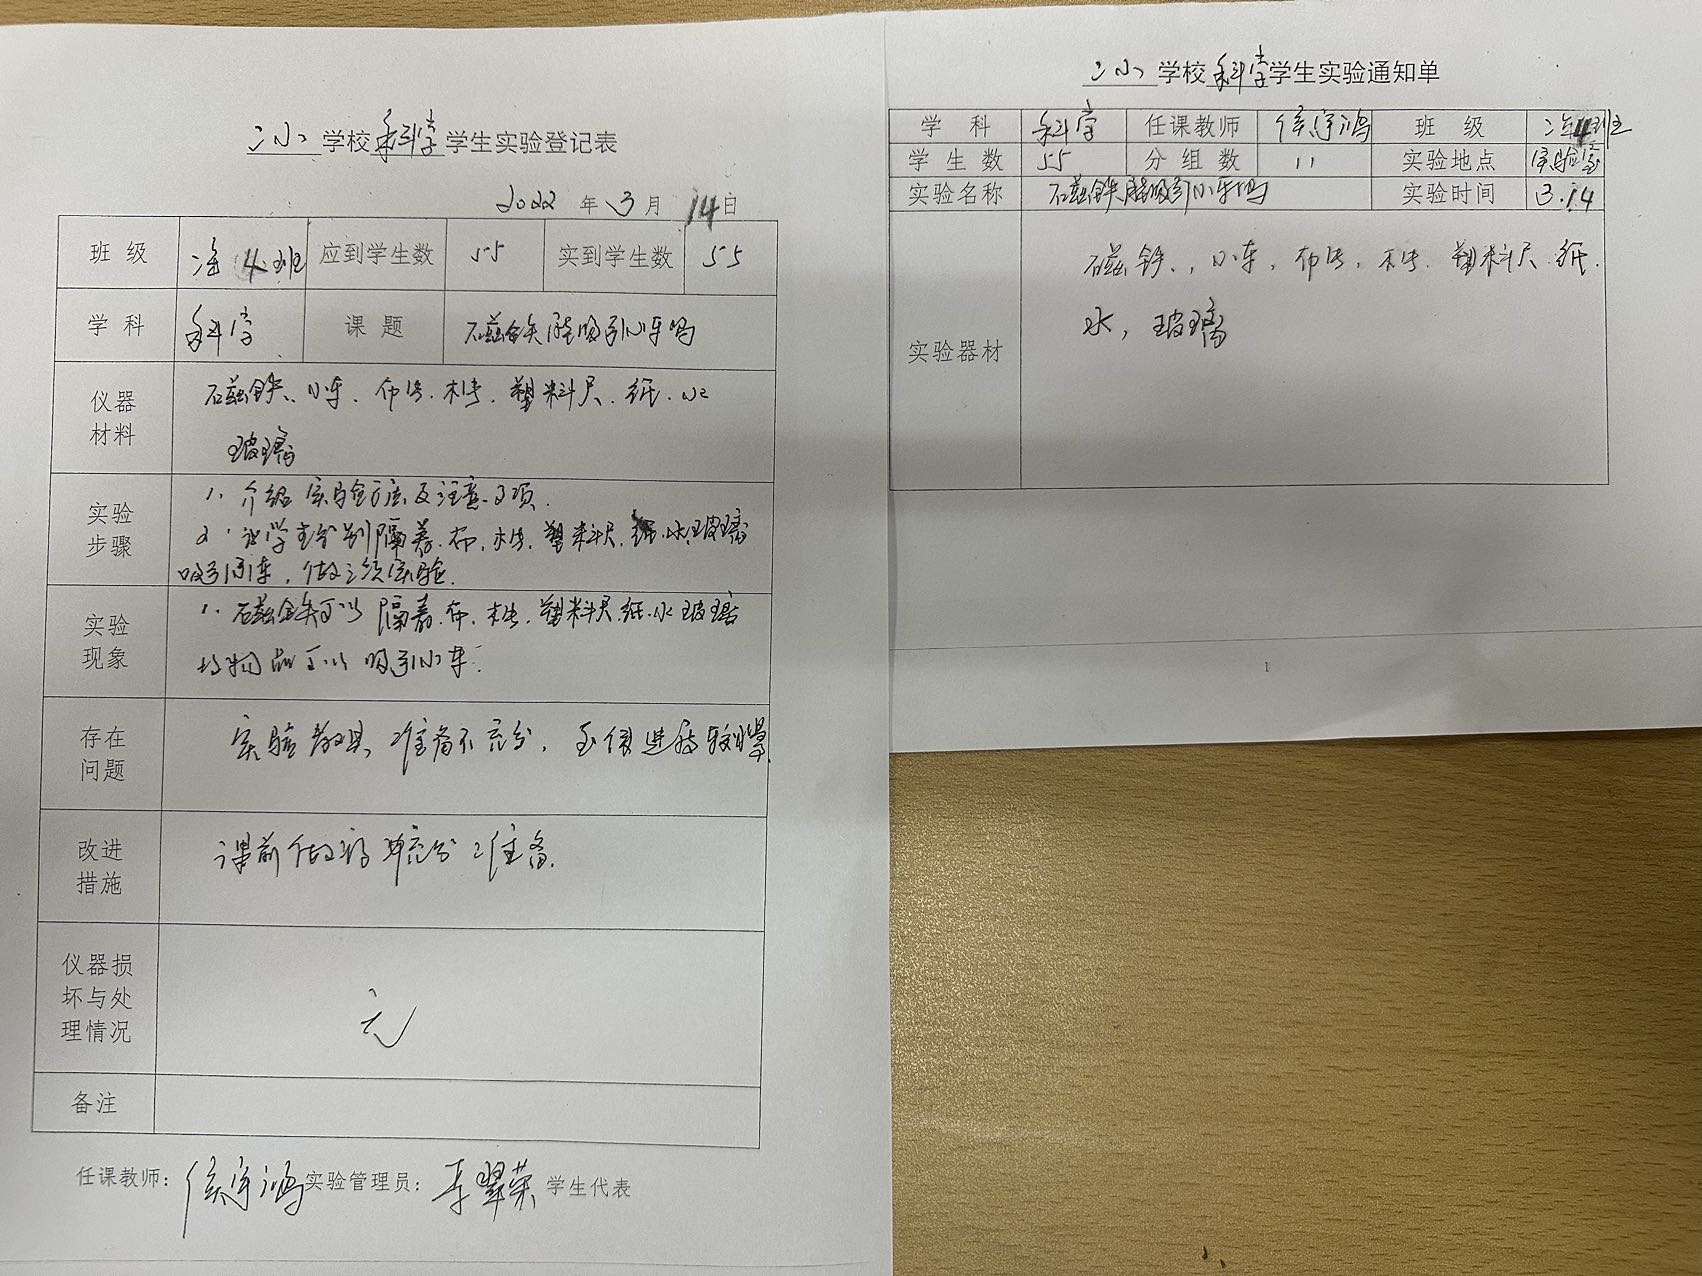 二小学校科学学生实验登记表
2022年3月14日
班级 二年4班 应到学生数 55 实到学生数 55
学科 科学 课题 磁铁能吸引小车吗
仪器材料 磁铁、小车、布块、木块、塑料尺、纸、水
玻璃
实验步骤 1、介绍实验方法及注意事项.
2、让学生分别隔着布、木块、塑料尺、纸、水、玻璃
吸引小车,做三次实验.
实验现象 1、磁铁可以隔着布、木块、塑料尺、纸、水玻璃
等物品可以吸引小车.
存在问题 实验教具准备不充分,
改进措施 课前做好充分准备.
仪器损坏与处理情况 无
备注
任课教师: 实验管理员: 李翠荣 学生代表
二小学校科学学生实验通知单
学科 科学 任课教师 班级 二年4班
学生数 55 分组数 11 实验地点 实验室
实验名称 磁铁能吸引小车吗 实验时间 3.14
实验器材 磁铁、小车、布块、木块、塑料尺、纸、
水,玻璃
1